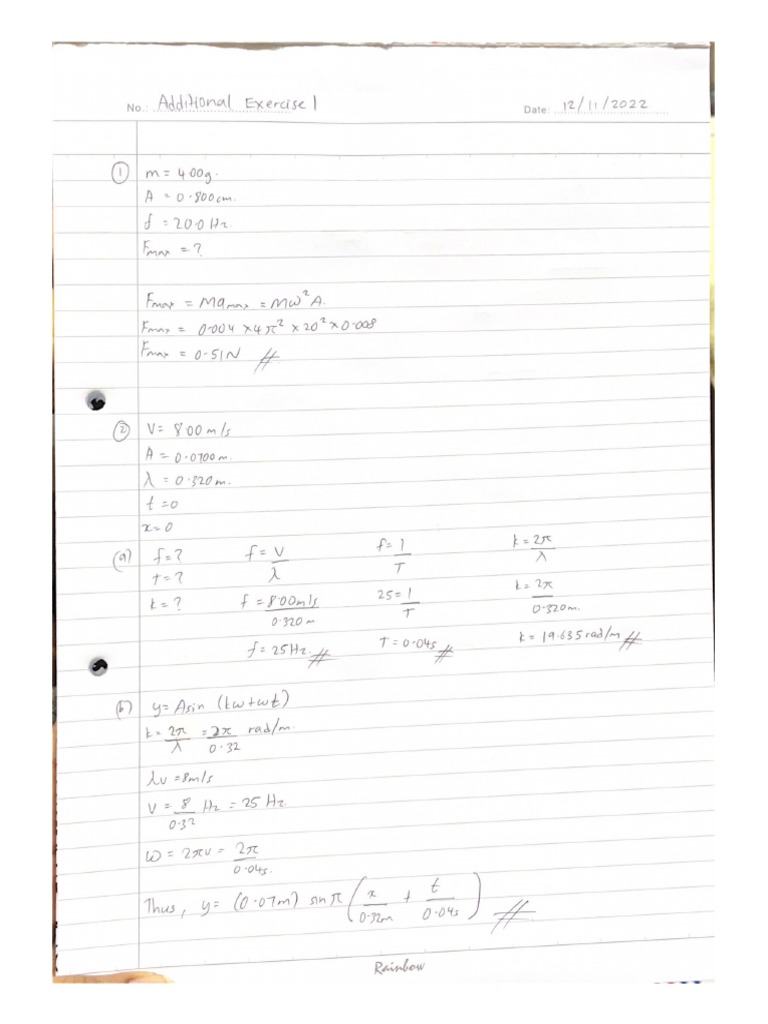 No.: Additional Exercise 1 Date: 12/11/2022
① m = 4.00g.
A = 0.800cm.
f = 20.0 Hz
Fmax = ?
Fmax = Mamax = Mω²A.
Fmax = 0.004 × 4π² × 20² × 0.008
Fmax = 0.51N //
② V = 8.00 m/s
A = 0.0700m.
λ = 0.320m.
t = 0
x = 0
(a) f = ? f = V/λ f = 1/T k = 2π/λ
t = ?
k = ? f = 8.00m/s / 0.320m 25 = 1/T k = 2π/0.320m.
f = 25Hz. // T = 0.04s // k = 19.635 rad/m //
(b) y = Asin (kω+ωt)
k = 2π/λ = 2π/0.32 rad/m.
λν = 8m/s
V = 8/0.32 Hz = 25 Hz
ω = 2πν = 2π/0.04s.
Thus, y = (0.07m) sin π (x/0.32m + t/0.04s) //
Rainbow